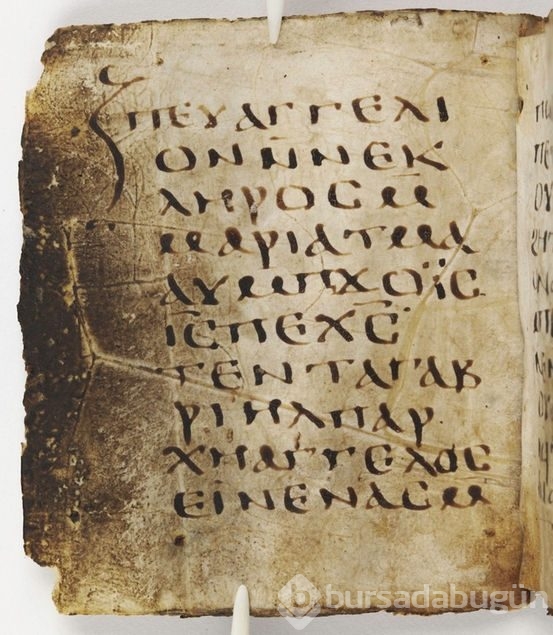 ⲡⲉⲩⲁⲅⲅⲉⲗⲓ
ⲟⲛⲛ̅ⲛⲉⲕ
ⲗⲏⲣⲟⲥⲙ
ⲙⲁⲣⲓⲁⲧⲙⲁ
ⲁⲩⲙⲡϫⲟⲓ̈ⲥ
ⲓ̅ⲥ̅ⲡⲉⲭ̅ⲥ̅
ⲧⲉⲛⲧⲁⲅⲁⲃ
ⲣⲓⲏⲗⲡⲁⲣ
ⲭⲏⲁⲅⲅⲉⲗⲟⲥ
ⲉⲓⲛⲉⲛⲁⲥⲙ
bursadabugün